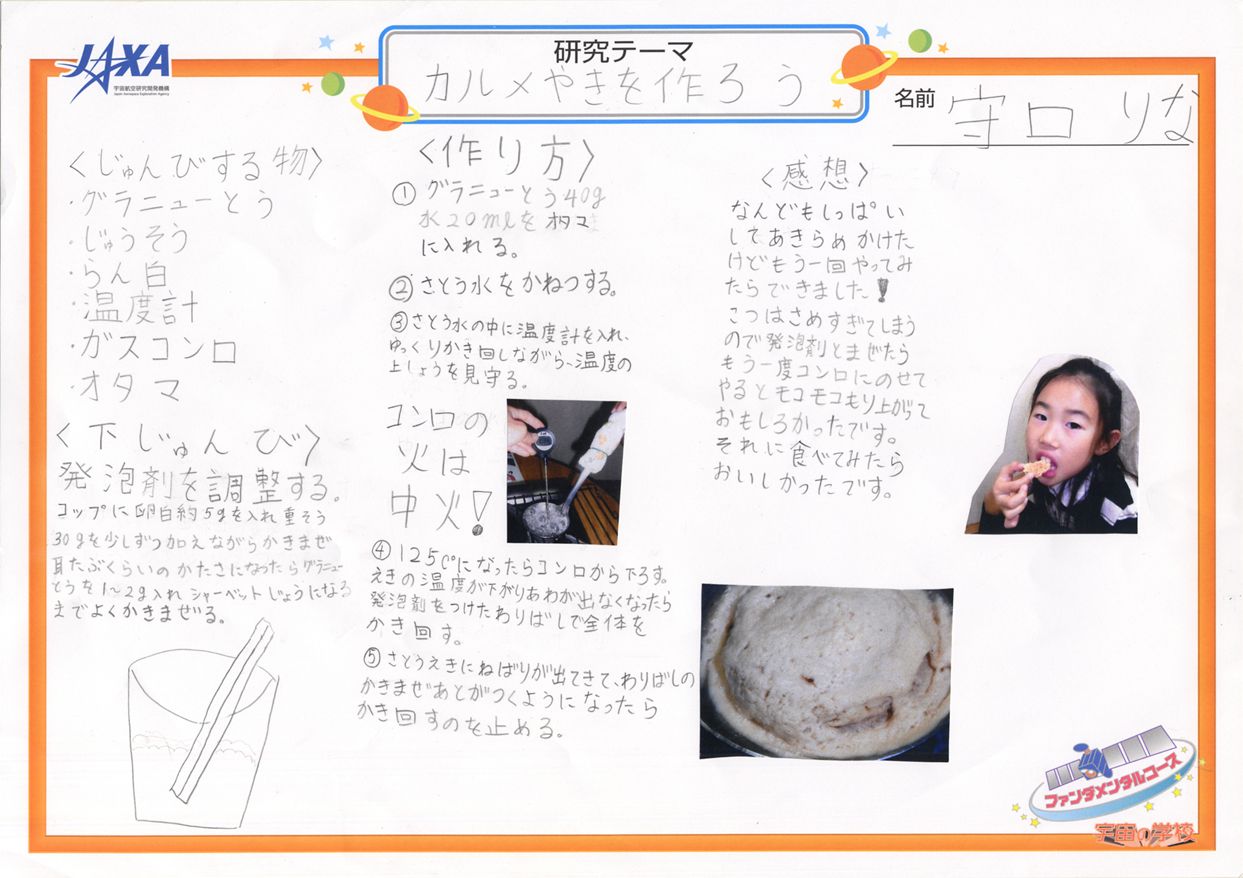 JAXA
宇宙航空研究開発機構
Japan Aerospace Exploration Agency
研究テーマ
カルメやきを作ろう
名前 守口 りな
〈じゅんびする物〉
・グラニューとう
・じゅうそう
・らん白
・温度計
・ガスコンロ
・オタマ
〈下じゅんび〉
発泡剤を調整する。
コップに卵白約5gを入れ重そう
30gを少しずつ加えながらかきまぜ
耳たぶくらいのかたさになったらグラニュー
とうを1〜2g入れシャーベットじょうになる
までよくかきまぜる。
〈作り方〉
①グラニューとう40g
水20mlをオタマ
に入れる。
②さとう水をかねつする。
③さとう水の中に温度計を入れ、
ゆっくりかき回しながら、温度の
上しょうを見守る。
コンロの
火は
中火!
④125℃になったらコンロから下ろす。
えきの温度が下がりあわが出なくなったら
発泡剤をつけたわりばしで全体を
かき回す。
⑤さとうえきにねばりが出てきて、わりばしの
かきまぜあとがつくようになったら
かき回すのを止める。
〈感想〉
なんどもしっぱい
してあきらめかけた
けどもう一回やってみ
たらできました!
こつはさめすぎてしまう
ので発泡剤とまぜたら
もう一度コンロにのせて
やるとモコモコもり上がって
おもしろかったです。
それに食べてみたら
おいしかったです。
ファンダメンタルコース
宇宙の学校